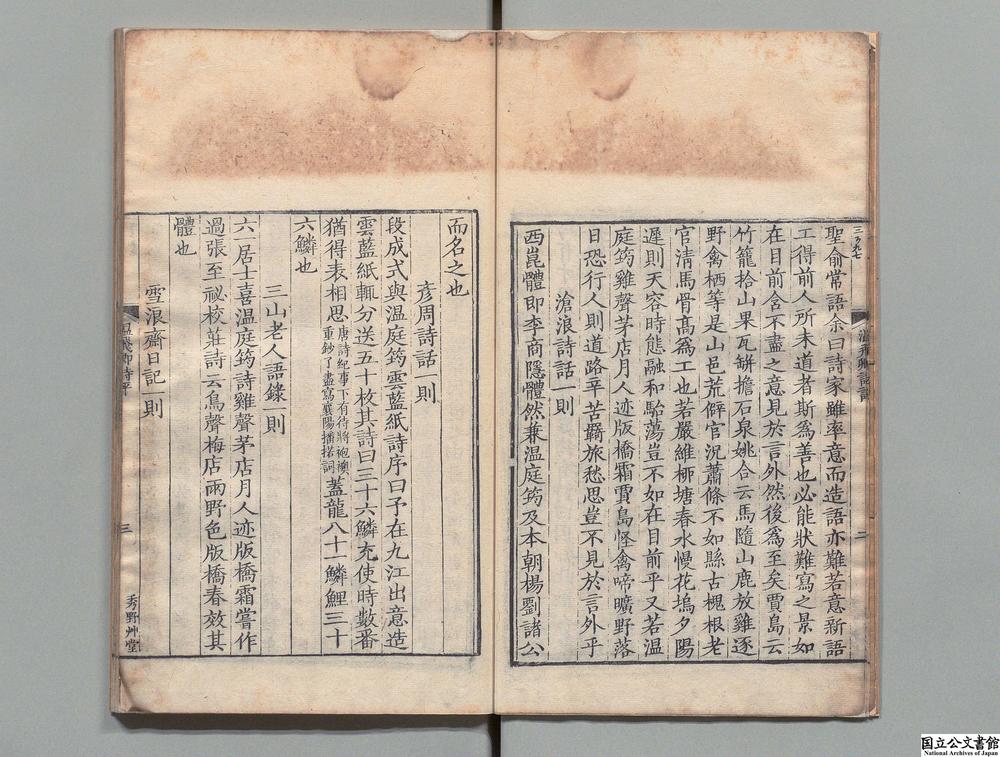 聖俞常語余曰詩家雖率意而造語亦難若意新語
工得前人所未道者斯爲善也必能狀難寫之景如
在目前含不盡之意見於言外然後爲至矣賈島云
竹籠拾山果瓦缾擔石泉姚合云馬隨山鹿放雞逐
野禽栖等是山邑荒僻官況蕭條不如縣古槐根老
官清馬骨髙爲工也若嚴維桺塘春水慢花塢夕陽
遲則天容時態融和駘蕩豈不如在目前乎又若温
庭筠雞聲茅店月人迹版橋霜賈島怪禽啼曠野落
日恐行人則道路辛苦羇旅愁思豈不見於言外乎
滄浪詩話一則
西崑體即李商隱體然兼温庭筠及本朝楊劉諸公
而名之也
彦周詩話一則
段成式與温庭筠雲藍紙詩序曰予在九江出意造
雲藍紙輒分送五十枚其詩曰三十六鱗充使時數番
猶得表相思唐詩紀事下有待將袍襖重鈔了盡寫襄陽播掿詞蓋龍八十一鱗鯉三十
六鱗也
三山老人語錄一則
六一居士喜温庭筠詩雞聲茅店月人迹版橋霜嘗作
過張至祕校莊詩云鳥聲梅店雨野色版橋春效其
體也
雪浪齋日記一則
三
秀野艸堂
国立公文書館
National Archives of Japan